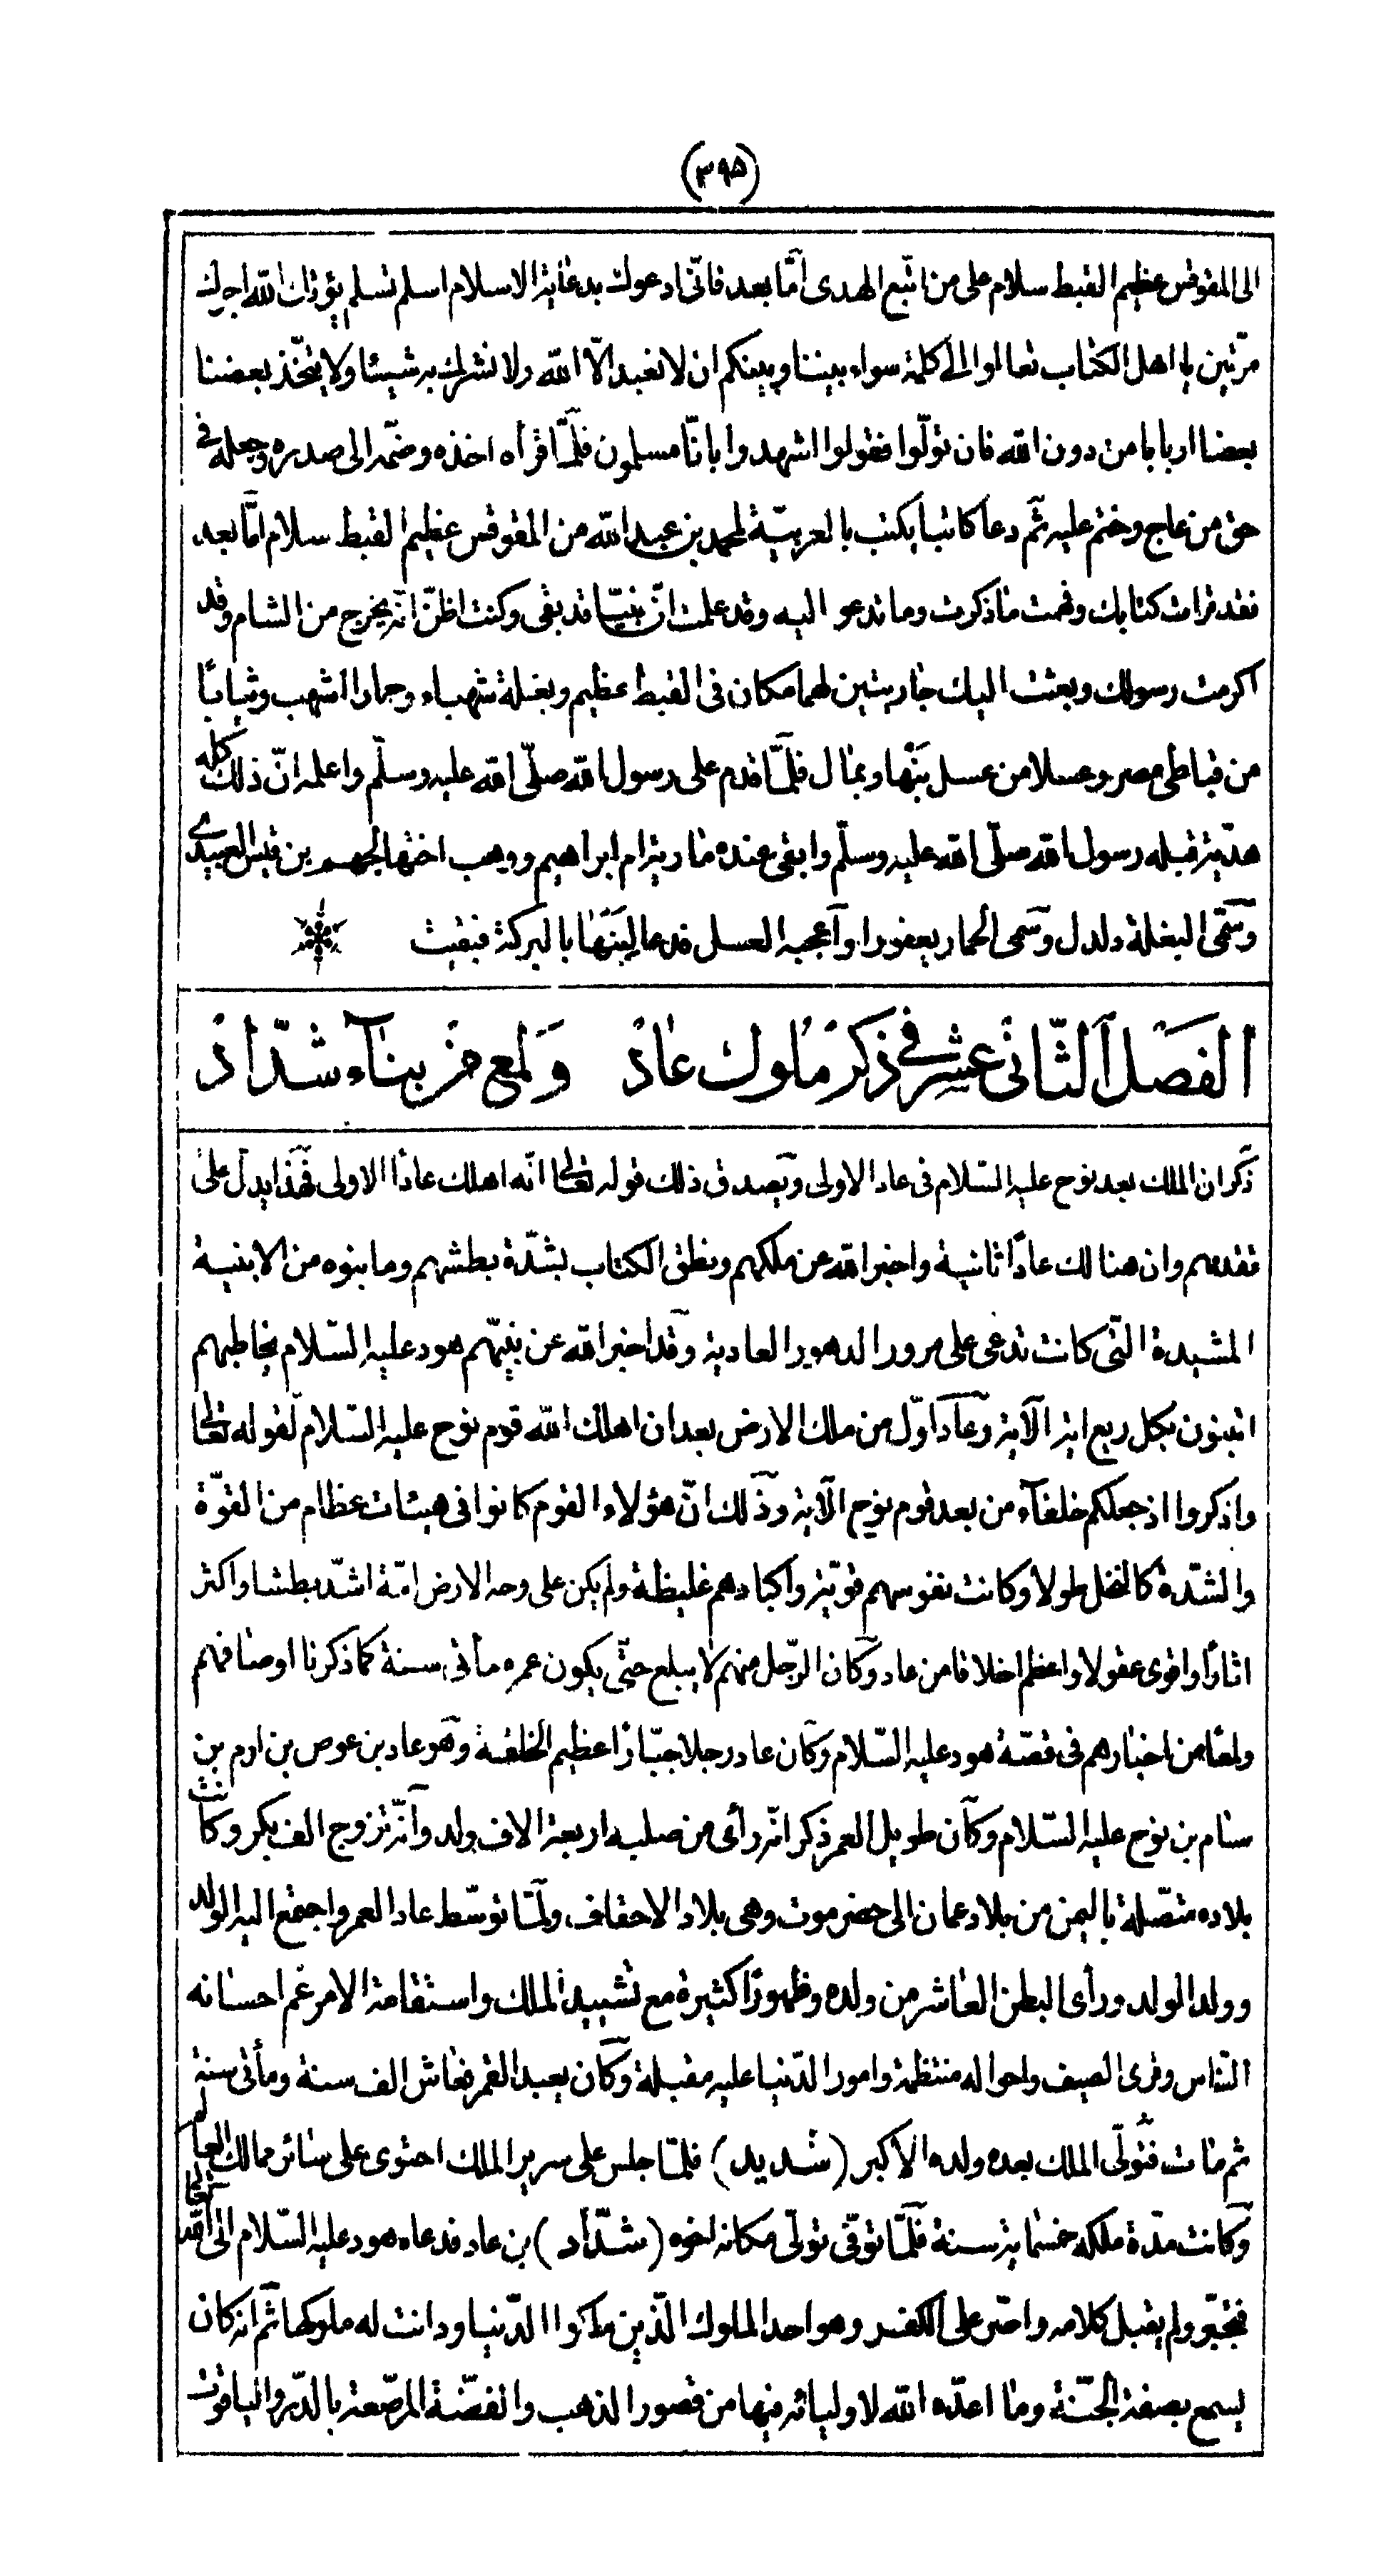 (٣٩٥)
الى المقوقس عظيم القبط سلام على من اتّبع الهدى أمّا بعد فانّى ادعوك بدعاية الاسلام اسلم تسلم يؤتك الله اجرك
مرّتين يا اهل الكتاب تعالوا الى كلمة سواء بيننا وبينكم ان لا نعبد الّا الله ولا نشرك به شيئا ولا يتّخذ بعضنا
بعضا اربابا من دون الله فان تولّوا فقولوا اشهدوا بانّا مسلمون فلمّا قرأه اخذه وضمّه الى صدره وجعله فى
حق من عاج وختم عليه ثمّ دعا كاتبا يكتب بالعربيّة لمحمد بن عبد الله من المقوقس عظيم القبط سلام امّا بعد
فقد قرات كتابك وفهمت ما ذكرت وما تدعو اليه وقد علمت انّ نبيّا قد بقى وكنت اظنّ انّه يخرج من الشام وقد
اكرمت رسولك وبعثت اليك جاريتين لهما مكان فى القبط عظيم وبغلة شهباء وحمارا اشهب وثيابًا
من قباطى مصر وعسلا من عسل بَنْها وبمال فلمّا قدم على رسول الله صلّى الله عليه وسلّم واعلمه انّ ذلك كله
هديّة قبله رسول الله صلّى الله عليه وسلّم وابقى عنده مارية ام ابراهيم ووهب اختها لجهم بن قيس العبيدى
وسمّى البغلة دلدل وسمى الحمار يعفورا وأعجبه العسل فدعا لِبَنْهَا بالبركة فبقيت
الفصل الثّانى عشر فى ذكر ملوك عاد ولمع من بناء شدّاد
ذكر ان الملك بعد نوح عليه السّلام فى عاد الاولى ويصدق ذلك قوله تعالى انّه اهلك عادًا الاولى فهذا يدلّ على
تقدمهم وان هنالك عادًا ثانية واخبر الله عن ملكهم ونطق الكتاب بشدّة بطشهم وما بنوه من الابنية
المشيدة الّتى كانت تدعى على مرور الدهور العادية وقد اخبر الله عن نبيّهم هود عليه السّلام يخاطبهم
اتبنون بكل ريع اية الآية وعاد اوّل من ملك الارض بعد ان اهلك الله قوم نوح عليه السّلام لقوله تعالى
واذكروا اذ جعلكم خلفآء من بعد قوم نوح الآية وذلك انّ هؤلاء القوم كانوا فى هيئات عظام من القوّة
والشدّة كالنخل طولا وكانت نفوسهم قويّة واكبادهم غليظة ولم يكن على وجه الارض امّة اشدّ بطشا واكثر
اثارًا واقوى عقولا واعظم اخلاقا من عاد وكان الرّجل منهم لا يبلع حتّى يكون عمره مأتى سنة كما ذكرنا اوصافهم
ولمعًا من اخبارهم فى قصّة هود عليه السّلام وكان عاد رجلا جبّارًا عظيم الخلقة وهو عاد بن عوص بن ارم بن
سام بن نوح عليه السّلام وكان طويل العمر ذكر انّه رأى من صلبه اربعة الاف ولد وأنّه تزوج الف بكر وكانت
بلاده متّصلة باليمن من بلاد عمان الى حضرموت وهى بلاد الاحقاف ولمّا توسّط عاد العمر واجتمع اليه الولد
وولد الولد ورأى البطن العاشر من ولده وظهورًا كثيرة مع تشييد الملك واستقامة الامر عم احسانه
النّاس وقرى الضيف واحواله منتظمة وامور الدّنيا عليه مقبلة وكان يعبد القمر فعاش الف سنة ومأتى سنة
ثم مات فتولّى الملك بعده ولده الأكبر (شديد) فلمّا جلس على سرير الملك احتوى على سائر ممالك العالم
وكانت مدّة ملكه خمسماية سنة فلمّا توفّى تولّى مكانه اخوه (شدّاد) بن عاد فدعاه هود عليه السّلام الى الله تعالى
فتجبّر ولم يقبل كلامه واصر على الكفر وهو احد الملوك الّذين ملكوا الدّنيا ودانت له ملوكها ثم انه كان
يسمع بصفة الجنّة وما اعدّه الله لاوليائه فيها من قصور الذهب والفضّة المرصّعة بالدّر والياقوت